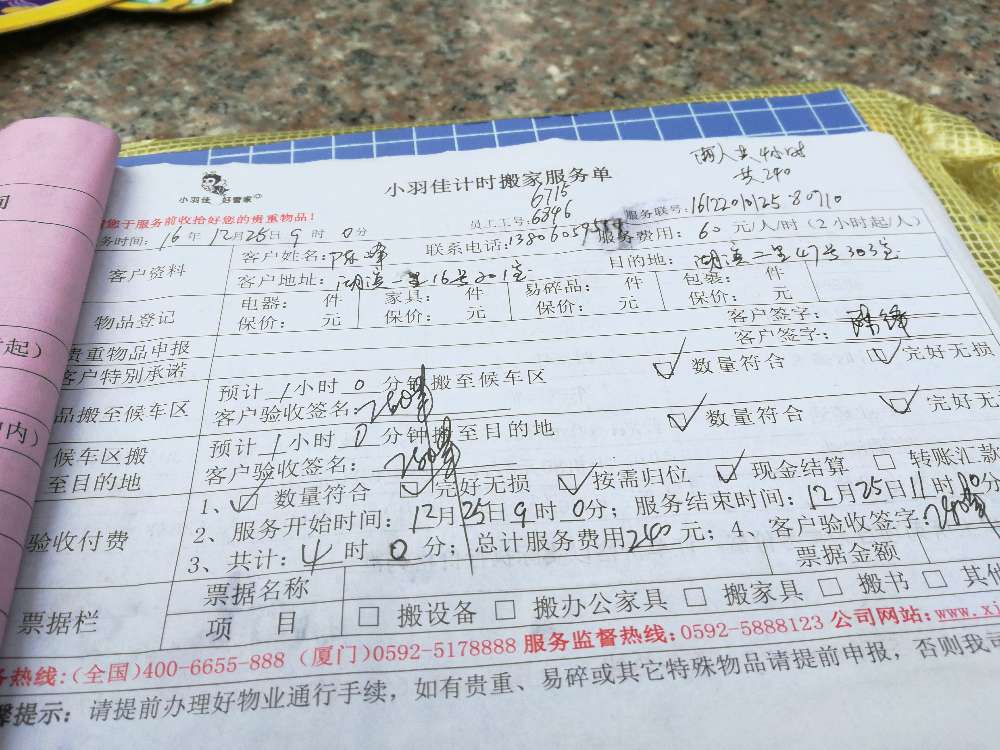 两人共4小时
共240
小羽佳 好管家
小羽佳计时搬家服务单
您于服务前收拾好您的贵重物品!
员工工号: 6715 6846
服务联号:
务时间: 16年12月25日9时0分
联系电话:
服务费用: 60元/人/时 (2小时起/人)
客户资料
客户姓名: 陈峰
客户地址: 湖滨一里16号201室
目的地: 湖滨一里47号303室
物品登记
电器: 件 家具: 件 易碎品: 件 包装: 件
保价: 元 保价: 元 保价: 元 保价: 元
贵重物品申报
客户签字:
客户特别承诺
客户签字:
品搬至候车区
预计1小时0分钟搬至候车区
数量符合 完好无损
客户验收签名:
候车区搬
至目的地
预计1小时0分钟搬至目的地
数量符合 完好无
客户验收签名:
验收付费
1、数量符合 完好无损 按需归位 现金结算 转账汇款
2、服务开始时间: 12月25日9时0分; 服务结束时间: 12月25日11时 分
3、共计: 4时0分; 总计服务费用240元; 4、客户验收签字:
票据栏
票据名称
票据金额
项 目
搬设备 搬办公家具 搬家具 搬书 其他
务热线: (全国)400-6655-888 (厦门)0592-5178888 服务监督热线: 0592-5888123 公司网站: www.xi
馨提示: 请提前办理好物业通行手续, 如有贵重、易碎或其它特殊物品请提前申报, 否则我司
间
起)
内)